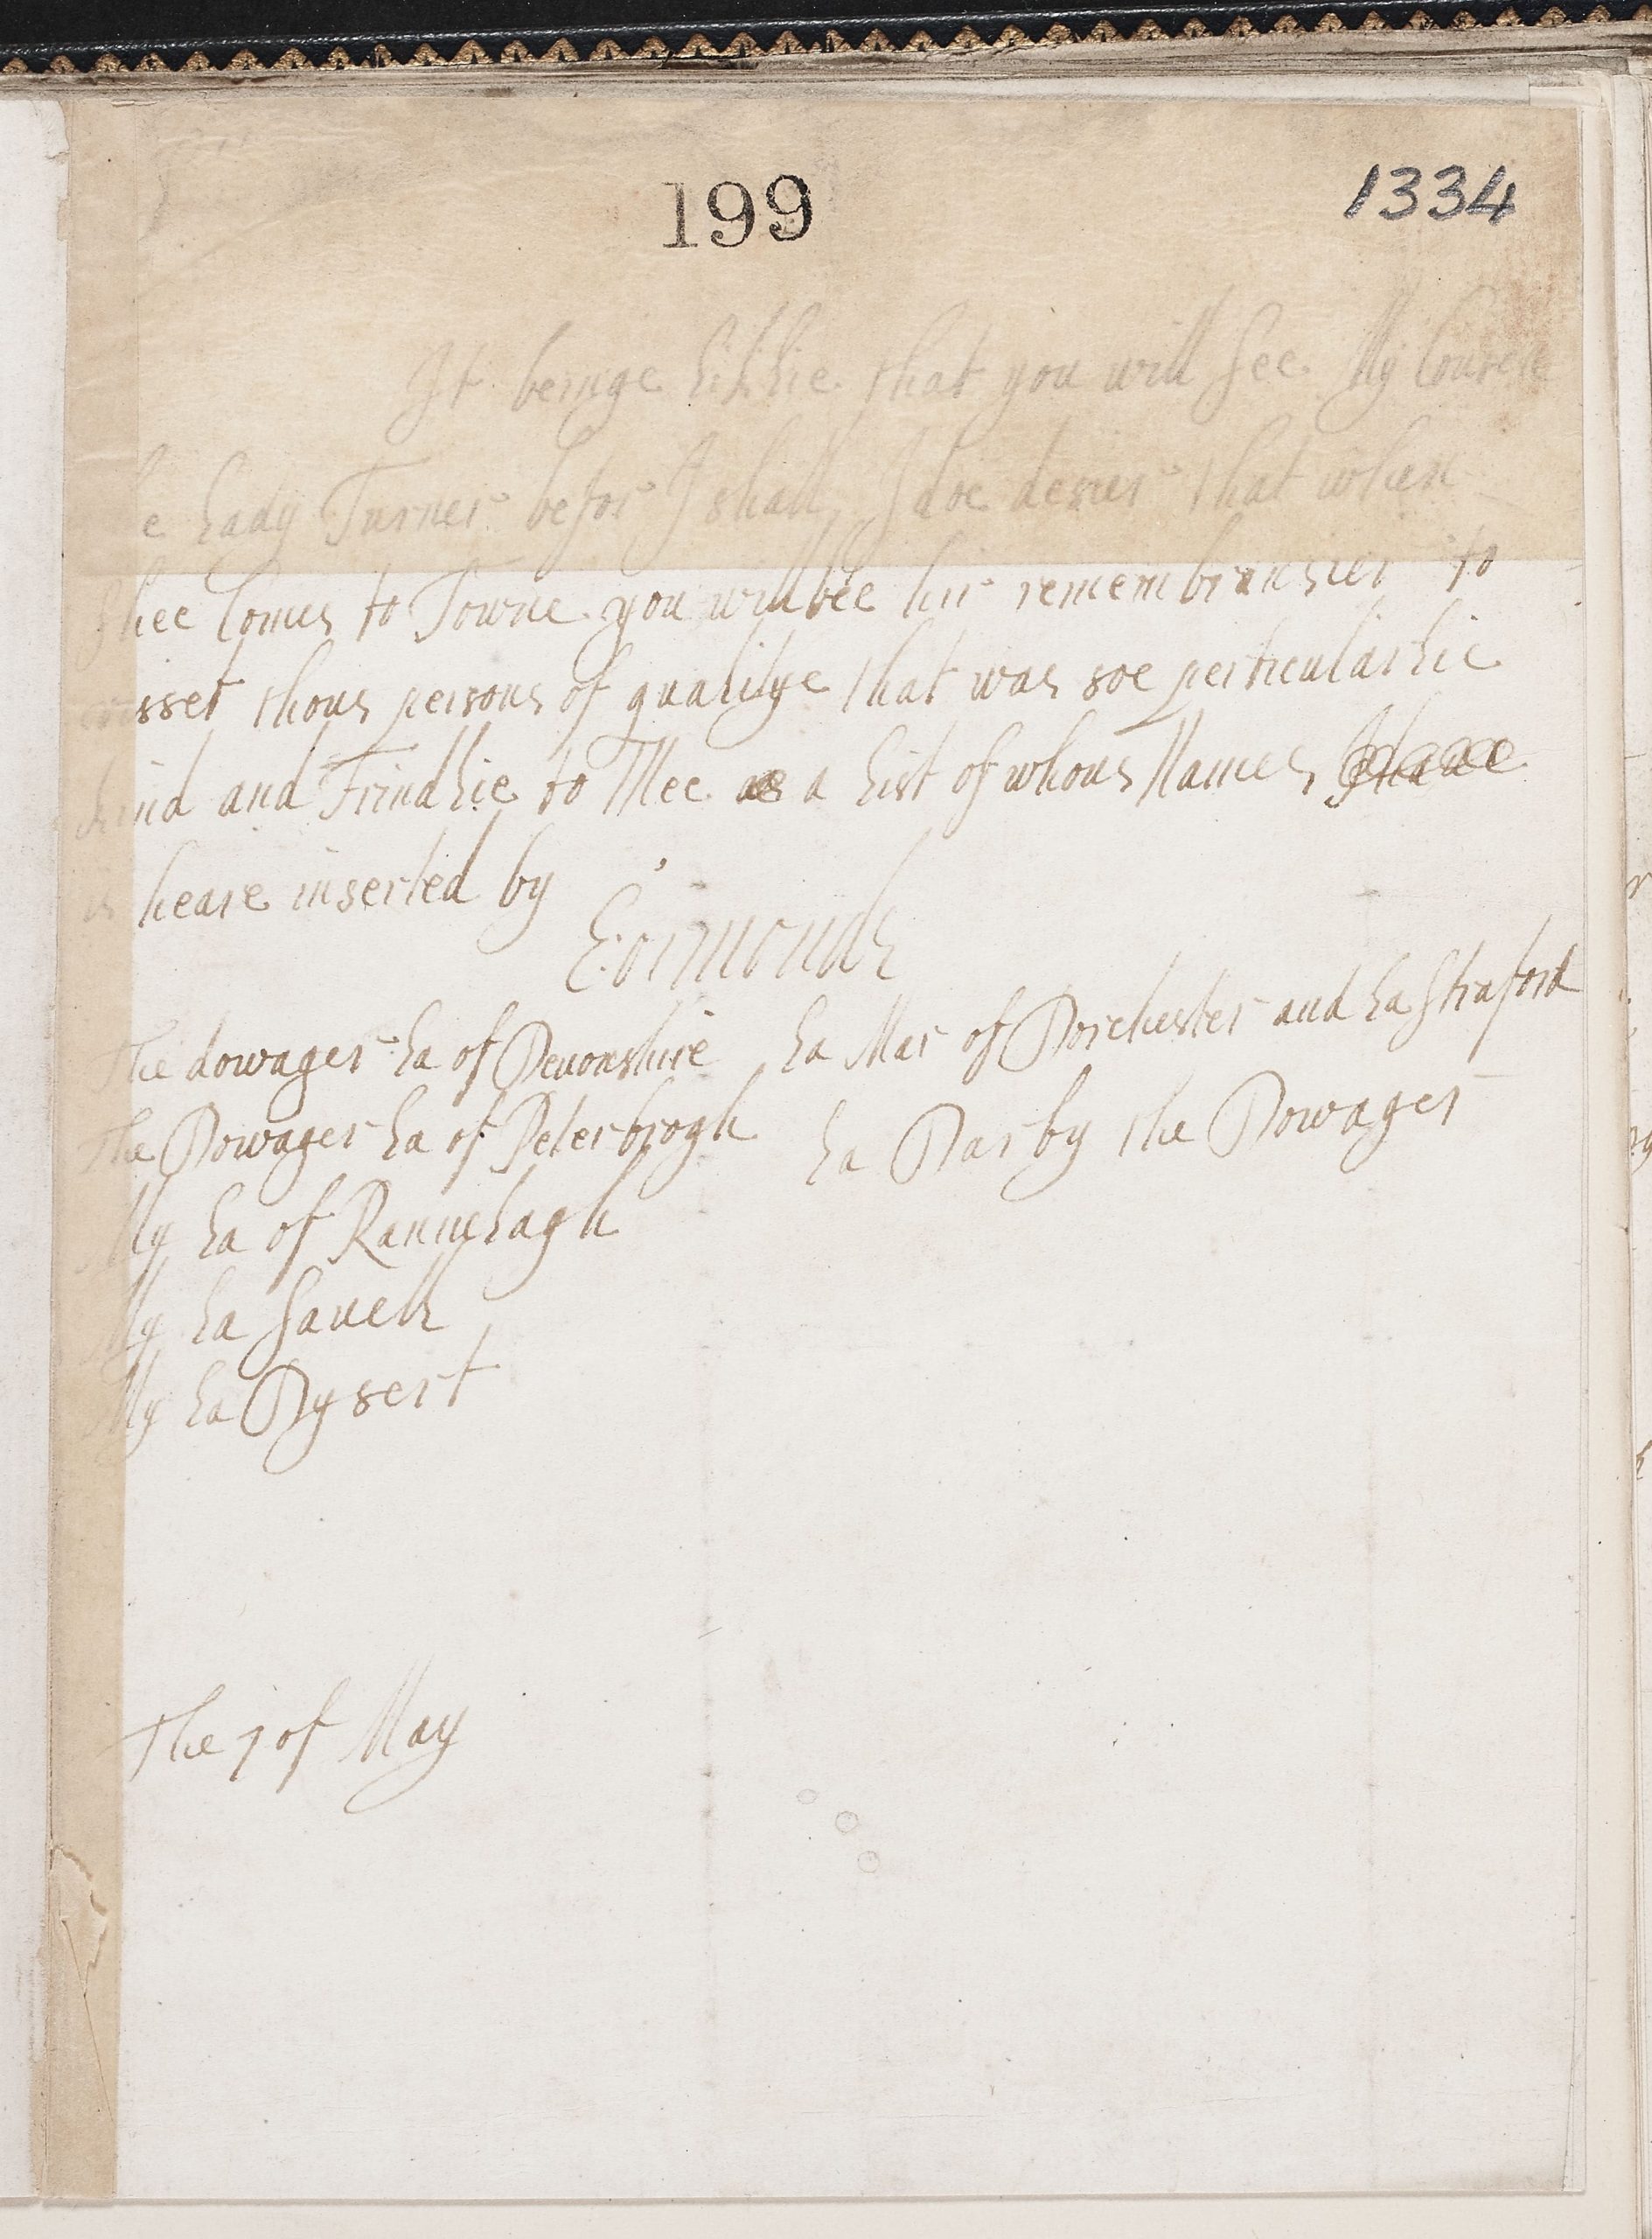 199
1334
It beinge Liklie that you will See My Cousen
e Lady Turner befor I shall, I doe desier that when
Shee Comes to Towne you willbee hir remembransier to
visset thous persons of qualitye that was soe perticularlie
kind and Frindlie to Mee as a List of whous Names I have
is heare inserted by
E: ormonde
The dowager La of Devonshire
La Mar of Dorchester and La Straford
The Dowager La of Peterbrogh
La Darby the Dowager
My La of Rannelagh
My La Savell
My La Dysert
The 7 of May